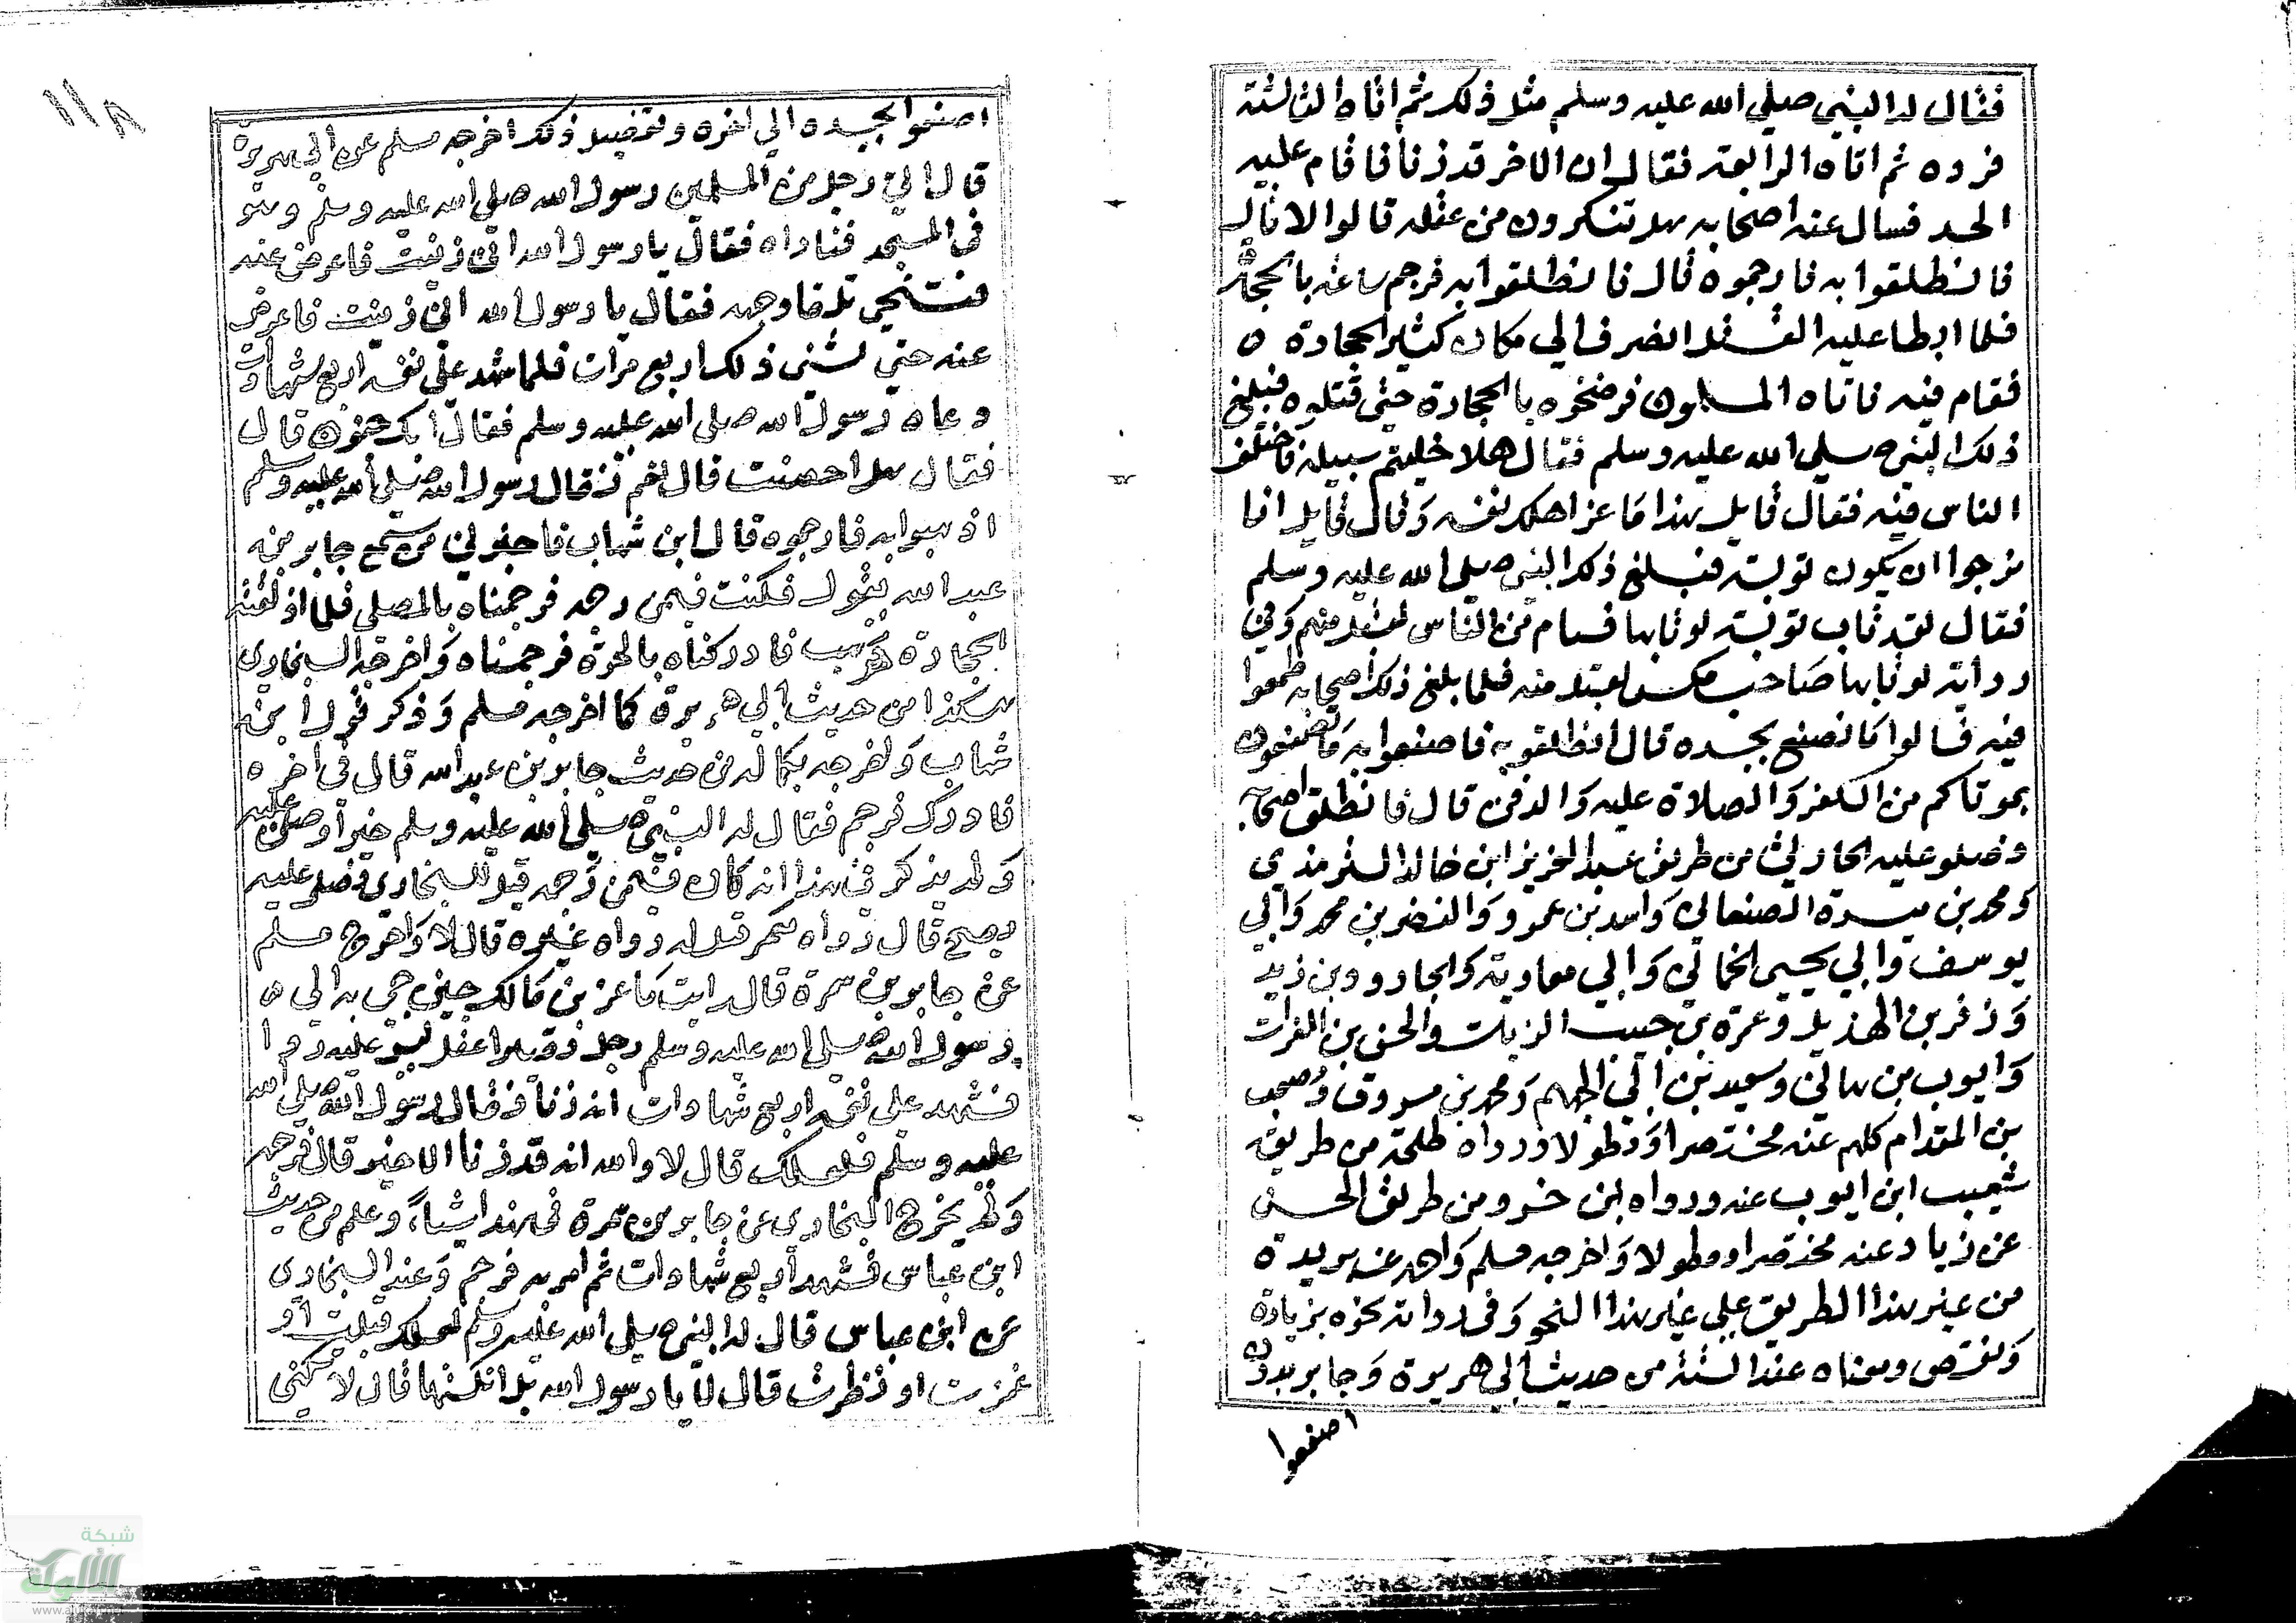 فقال له النبي صلي الله عليه وسلم مثل ذلك ثم اتاه الثالثة
فرده ثم اتاه الرابعة فقال ان الاخر قد زنا فاقام عليه
الحد فسال عنه اصحابه هل تنكرون من عقله قالوا لا قال
فانطلقوا به فارجموه قال فانطلقوا به فرجم ساعة بالحجارة
فلما ابطا عليه القتل انصرف الي مكان كثير الحجارة ه
فقام فيه فاتاه المسلمون فرضخوه بالحجارة حتي قتلوه فبلغ
ذلك النبي صلي الله عليه وسلم فقال هلا خليتم سبيله فاختلف
الناس فيه فقال قايل هذا ماعز اهلك نفسه وقال قايل انا
نرجوا ان يكون توبة فبلغ ذلك النبي صلي الله عليه وسلم
فقال لقد تاب توبة لو تابها فيام من الناس لقبل منهم وفي
رواية لو تابها صاحب مكس لقبل منه فلما بلغ ذلك اصحابه طمعوا
فيه فقالوا ما نصنع بجسده قال انطلقوا به فاصنعوا به ما تصنعون
بموتاكم من الكفن والصلاة عليه والدفن قال فانطلق اصحابه
وصلو عليه الحارثي من طريق عبد العزيز ابن خالد الترمذي
ومحمد بن ميسرة الصنعاني واسد بن عمرو والنضر بن محمد وابي
يوسف وابي يحيي الحماني وابي معاوية والجارود بن زيد
وزفر بن الهذيل وحمزة بن حبيب الزيات والحسن بن الفرات
وايوب بن هاني وسعيد بن ابي الجهم ومحمد بن مسروق ومصعب
بن المقدام كلهم عنه مختصرا ومطولا ورواه طلحة من طريق
شعيب ابن ايوب عنه ورواه ابن خسرو من طريق الحسن
عن زياد عنه مختصرا ومطولا واخرجه مسلم واحمد عنه بريدة
من غير هذا الطريق علي غير هذا النحو وفي رواية نحوه بزيادة
ونقص ومعناه عند الستة من حديث ابي هريرة وجابر بدون
اصنعوا
١١٨
اصنعوا بجسده الي اخره وتفصيل ذلك اخرجه مسلم عن ابي هريرة
قال اتي رجل من المسلمين رسول الله صلي الله عليه وسلم وهو
في المسجد فناداه فقال يا رسول الله اني زنيت فاعرض عنه
فتنحي تلقا وجهه فقال يا رسول الله اني زنيت فاعرض
عنه حتي ثني ذلك اربع مرات فلما شهد علي نفسه اربع شهادات
دعاه رسول الله صلي الله عليه وسلم فقال ابك جنون قال
فقال هل احصنت قال نعم فقال رسول الله صلي الله عليه وسلم
اذهبوا به فارجموه قال ابن شهاب فاخبرني من سمع جابر بن
عبد الله يقول فكنت فيمن رجمه فرجمناه بالمصلي فلما اذلقته
الحجارة هرب فادركناه بالحرة فرجمناه واخرجه البخاري
هكذا من حديث ابي هريرة كما اخرجه مسلم وذكر قول ابن
شهاب واخرجه بكماله من حديث جابر بن عبد الله قال في اخره
فادرك فرجم فقال له النبي صلي الله عليه وسلم خيرا وصلي عليه
ولم يذكر في هذا انه كان فيمن رجمه قيل للبخاري وصلي عليه
يصح قال رواه معمر قيل له رواه غيره قال لا واخرج مسلم
عن جابر بن سمرة قال رايت ماعز بن مالك حين جي به الي ه
رسول الله صلي الله عليه وسلم رجل اعضل ليس عليه ردا
فشهد علي نفسه اربع شهادات انه زنا فقال رسول الله صلي الله
عليه وسلم فلعلك قال لا والله انه قد زنا الاخر قال فرجمه
ولم يخرج البخاري عن جابر بن سمرة في هذا شيا، وعلم من حديث
ابن عباس فشهد اربع شهادات ثم امر به فرجم وعند البخاري
عن ابن عباس قال له النبي صلي الله عليه وسلم لعلك قبلت او
غمزت او نظرت قال لا يا رسول الله بل انكتها قال لا يكني
شبكة
الألوكة